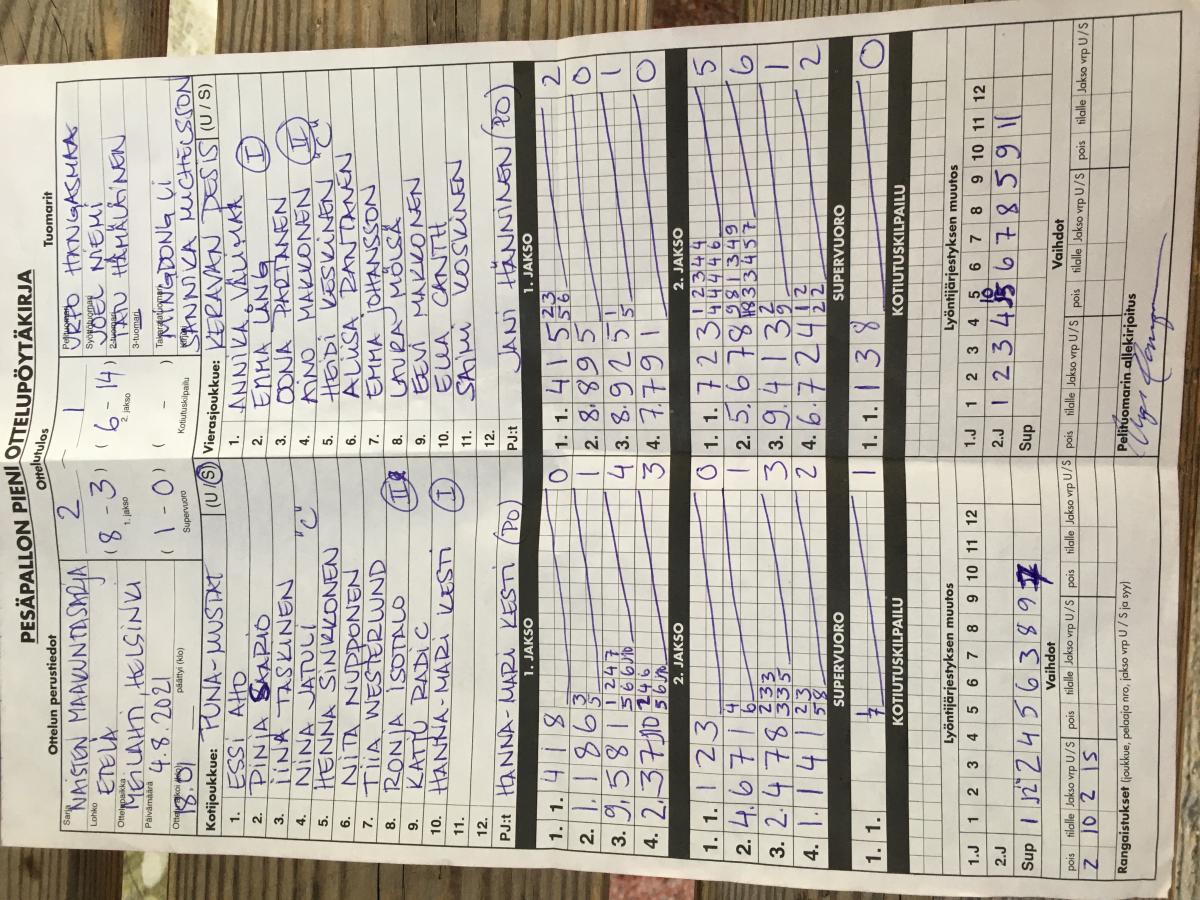 PESÄPALLON PIENI OTTELUPÖYTÄKIRJA
Ottelun perustiedot Ottelutulos Tuomarit
Sarja NAISTEN MAAKUNTASARJA
Lohko ETELÄ
Ottelupaikka MEILAHTI, HELSINKI
Päivämäärä 4.8.2021
18.01 päättyi (klo)
2 – 1
( 8 – 3 ) ( 6 – 14 )
1. jakso 2. jakso
( 1 – 0 ) ( – )
Supervuoro Kotiutuskilpailu
Pelituomari URPO HANGASMAA
Syöttötuomari JOEL NIEMI
2-tuomari TATU HÄMÄLÄINEN
3-tuomari
Takarajatuomari YINGDONG LI
SANNIKA MICHELSSON
Kotijoukkue: PUNA-MUSTAT (U/S)
1. ESSI AHO
2. PINJA SAARIO
3. IINA TASKINEN
4. NINA JATULI "C"
5. HENNA SINKKONEN
6. NIITA NUPPONEN
7. TIIA WESTERLUND
8. RONJA ISOTALO II
9. KATJU RADIC
10. HANNA-MARI KESTI I
11.
12.
PJ:t HANNA-MARI KESTI (PO)
Vierasjoukkue: KERAVAN DESIS (U/S)
1. ANNIKA VÄLIMAA
2. EMMA LÅNG I
3. OONA PARTANEN
4. AINO MAKKONEN II
5. HEIDI KESKINEN "C"
6. ALIISA RANTANEN
7. EMMA JOHANSSON
8. LAURA MÖLSÄ
9. EEVI MAKKONEN
10. ELLA CANTH
11. SAINI KOSKINEN
12.
PJ:t JANI HÄNNINEN (PO)
1. JAKSO
1. 1. 4 1 8 0
2. 1. 1 8 6 3 5 1
3. 9. 5 8 1 1 2 4 7 5 6 6 10 4
4. 2. 3 7 10 2 4 6 5 6 10 3
2. JAKSO
1. 1. 1 2 3 0
2. 4. 6 7 1 4 6 1
3. 2. 4 7 8 2 3 3 3 3 5 3
4. 1. 1 4 1 2 3 5 8 2
SUPERVUORO
1. 1. 1 7 1
KOTIUTUSKILPAILU
1. JAKSO
1. 1. 4 1 5 2 3 5 6 2
2. 8. 8 9 5 0
3. 8. 9 2 5 1 5 1
4. 7. 7 9 1 0
2. JAKSO
1. 1. 7 2 3 1 2 3 4 4 4 4 4 4 6 5
2. 5. 6 7 8 9 8 1 3 4 9 6
3. 9. 4 1 3 2 9 1
4. 6. 7 2 4 1 2 2 2 2
SUPERVUORO
1. 1. 1 3 8 0
KOTIUTUSKILPAILU
Lyöntijärjestyksen muutos
1 2 3 4 5 6 7 8 9 10 11 12
1.J
2.J
Sup 1 2 4 5 6 3 8 9 7
Vaihdot
pois tilalle Jakso vrp U/S pois tilalle Jakso vrp U/S pois tilalle Jakso vrp U/S
2 10 2 1 S
Lyöntijärjestyksen muutos
1 2 3 4 5 6 7 8 9 10 11 12
1.J
2.J 1 2 3 4 10 6 7 8 5 9 11
Sup
Vaihdot
pois tilalle Jakso vrp U/S pois tilalle Jakso vrp U/S pois tilalle Jakso vrp U/S
Rangaistukset (joukkue, pelaaja nro, jakso vrp U/S ja syy)
Pelituomarin allekirjoitus